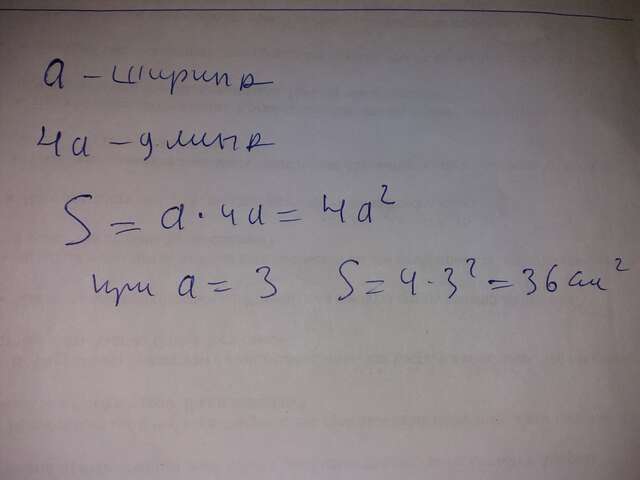 a - ширина
4a - длина
S = a · 4a = 4a²
при a = 3 S = 4 · 3² = 36 см²